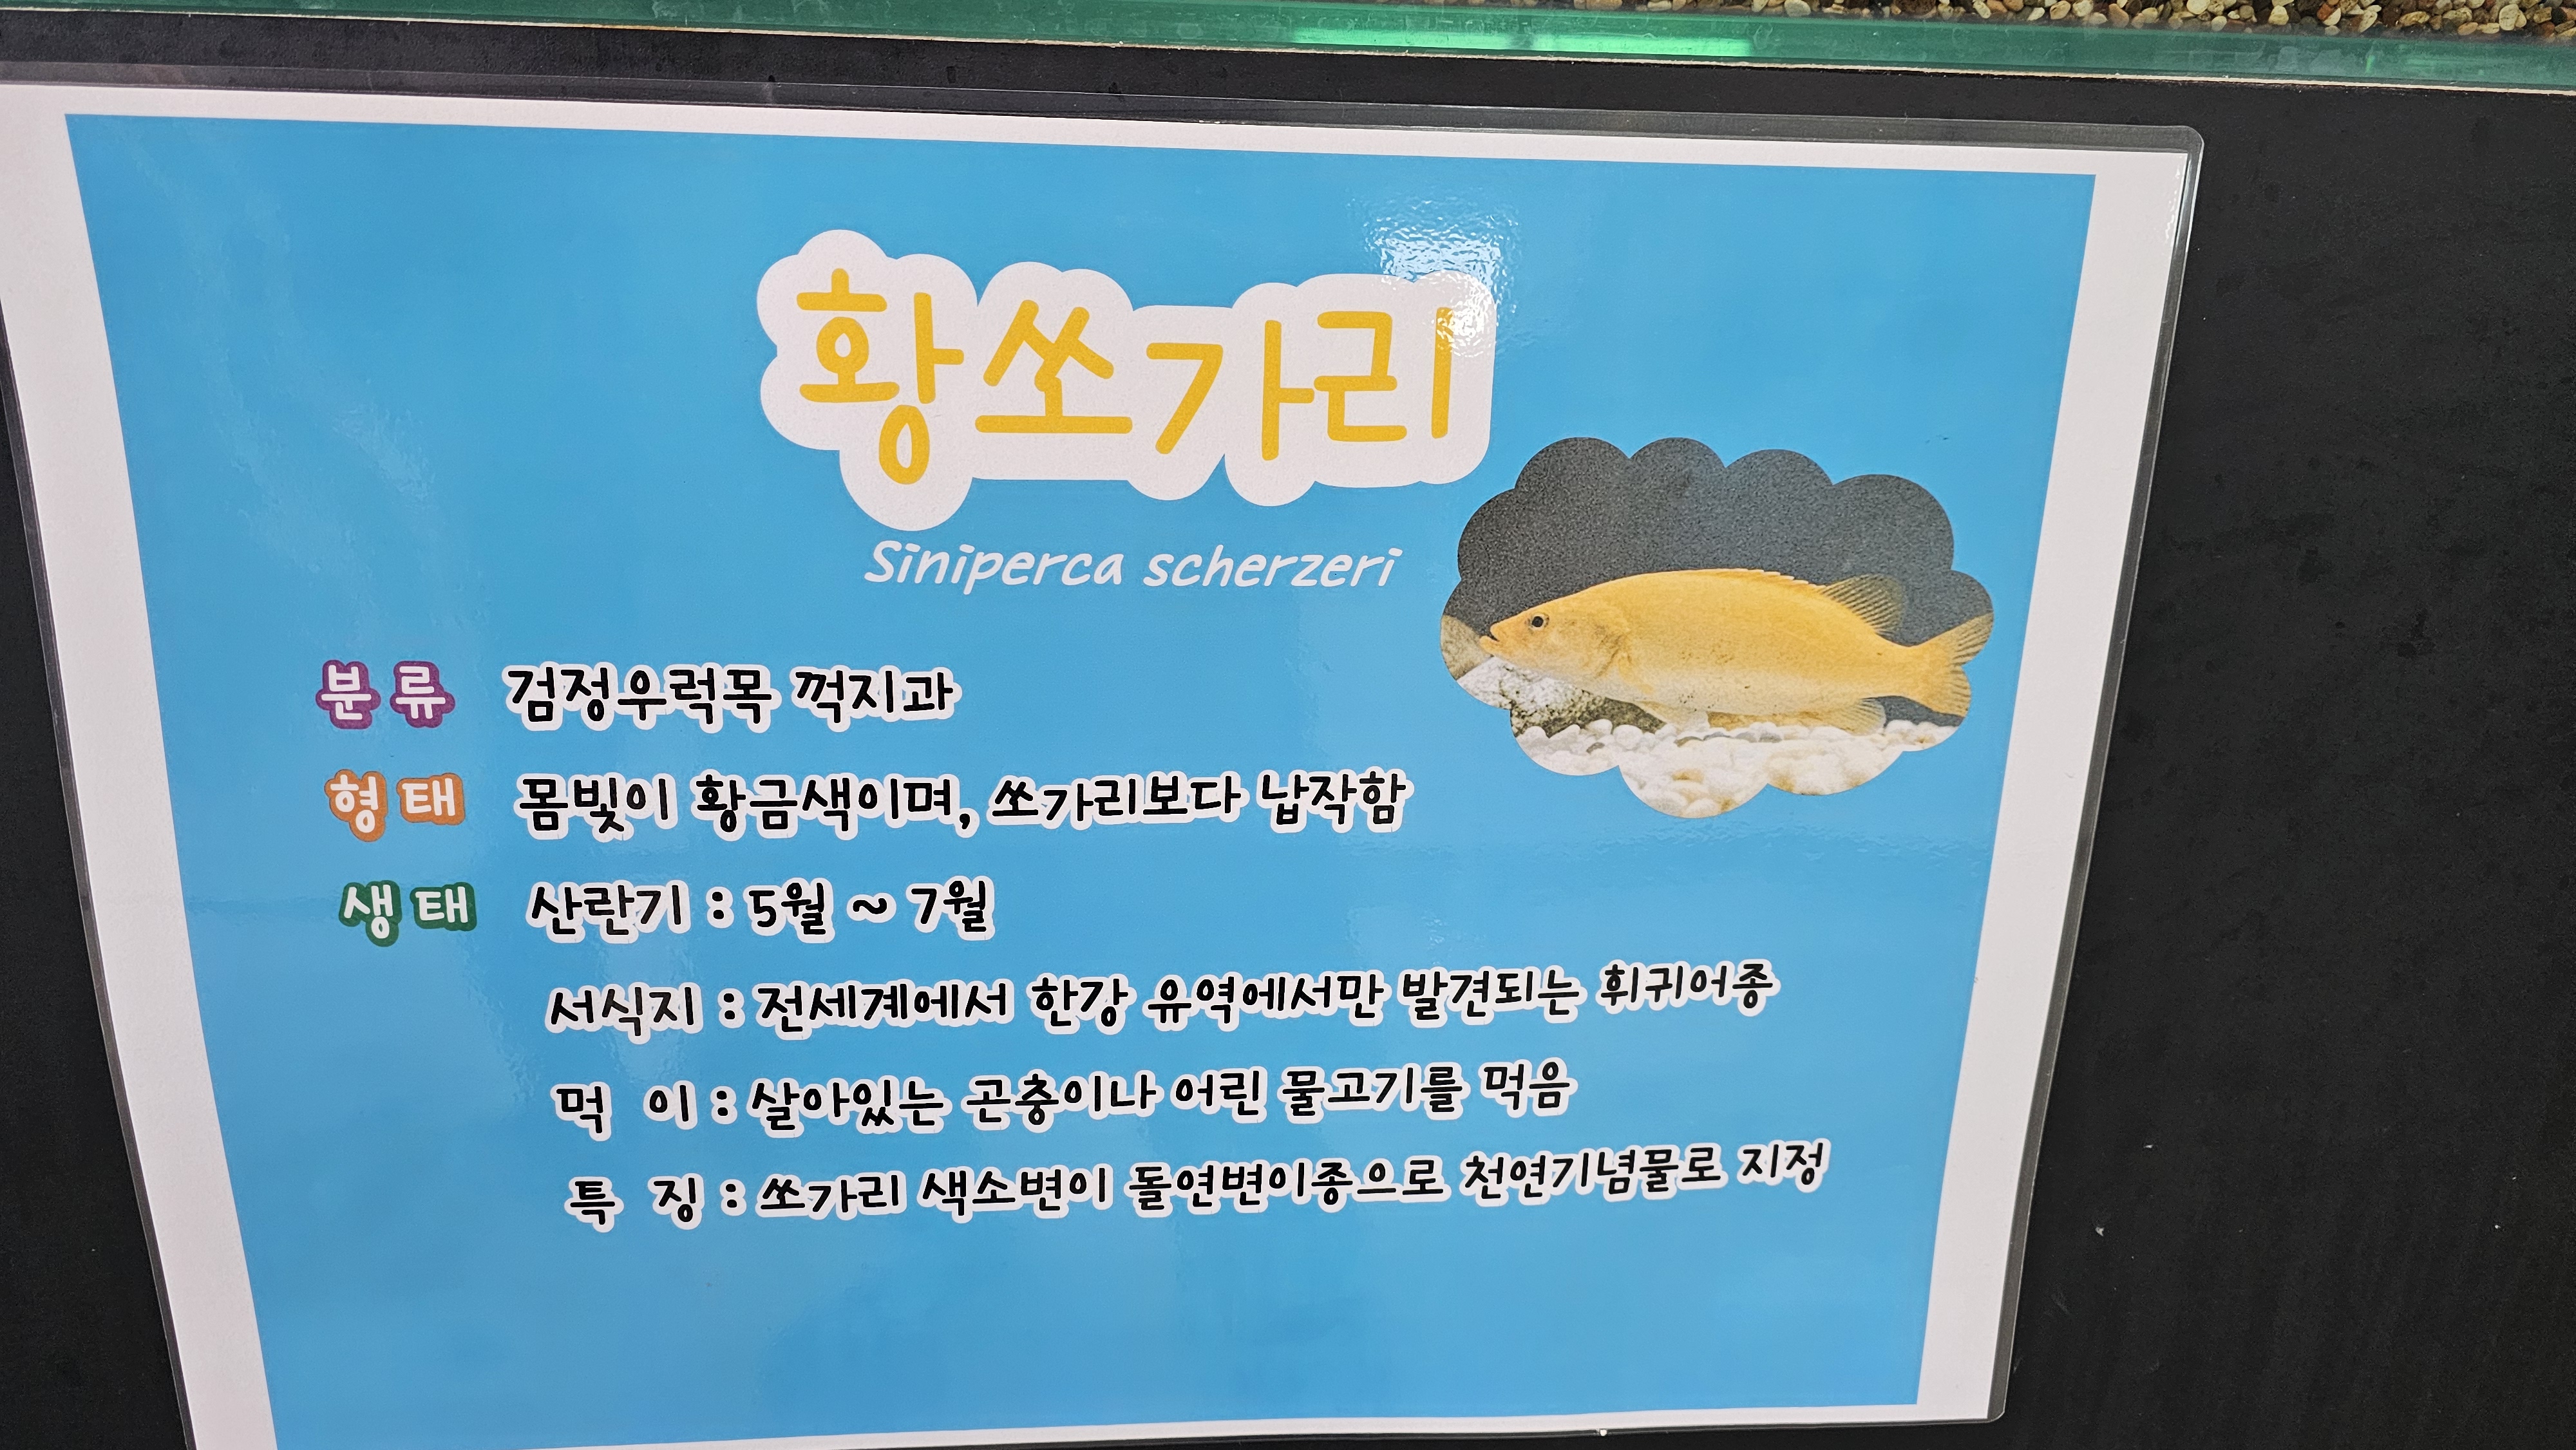 황쏘가리
Siniperca scherzeri
분류 검정우럭목 꺽지과
형태 몸빛이 황금색이며, 쏘가리보다 납작함
생태 산란기 : 5월 ~ 7월
서식지 : 전세계에서 한강 유역에서만 발견되는 휘귀어종
먹 이 : 살아있는 곤충이나 어린 물고기를 먹음
특 징 : 쏘가리 색소변이 돌연변이종으로 천연기념물로 지정